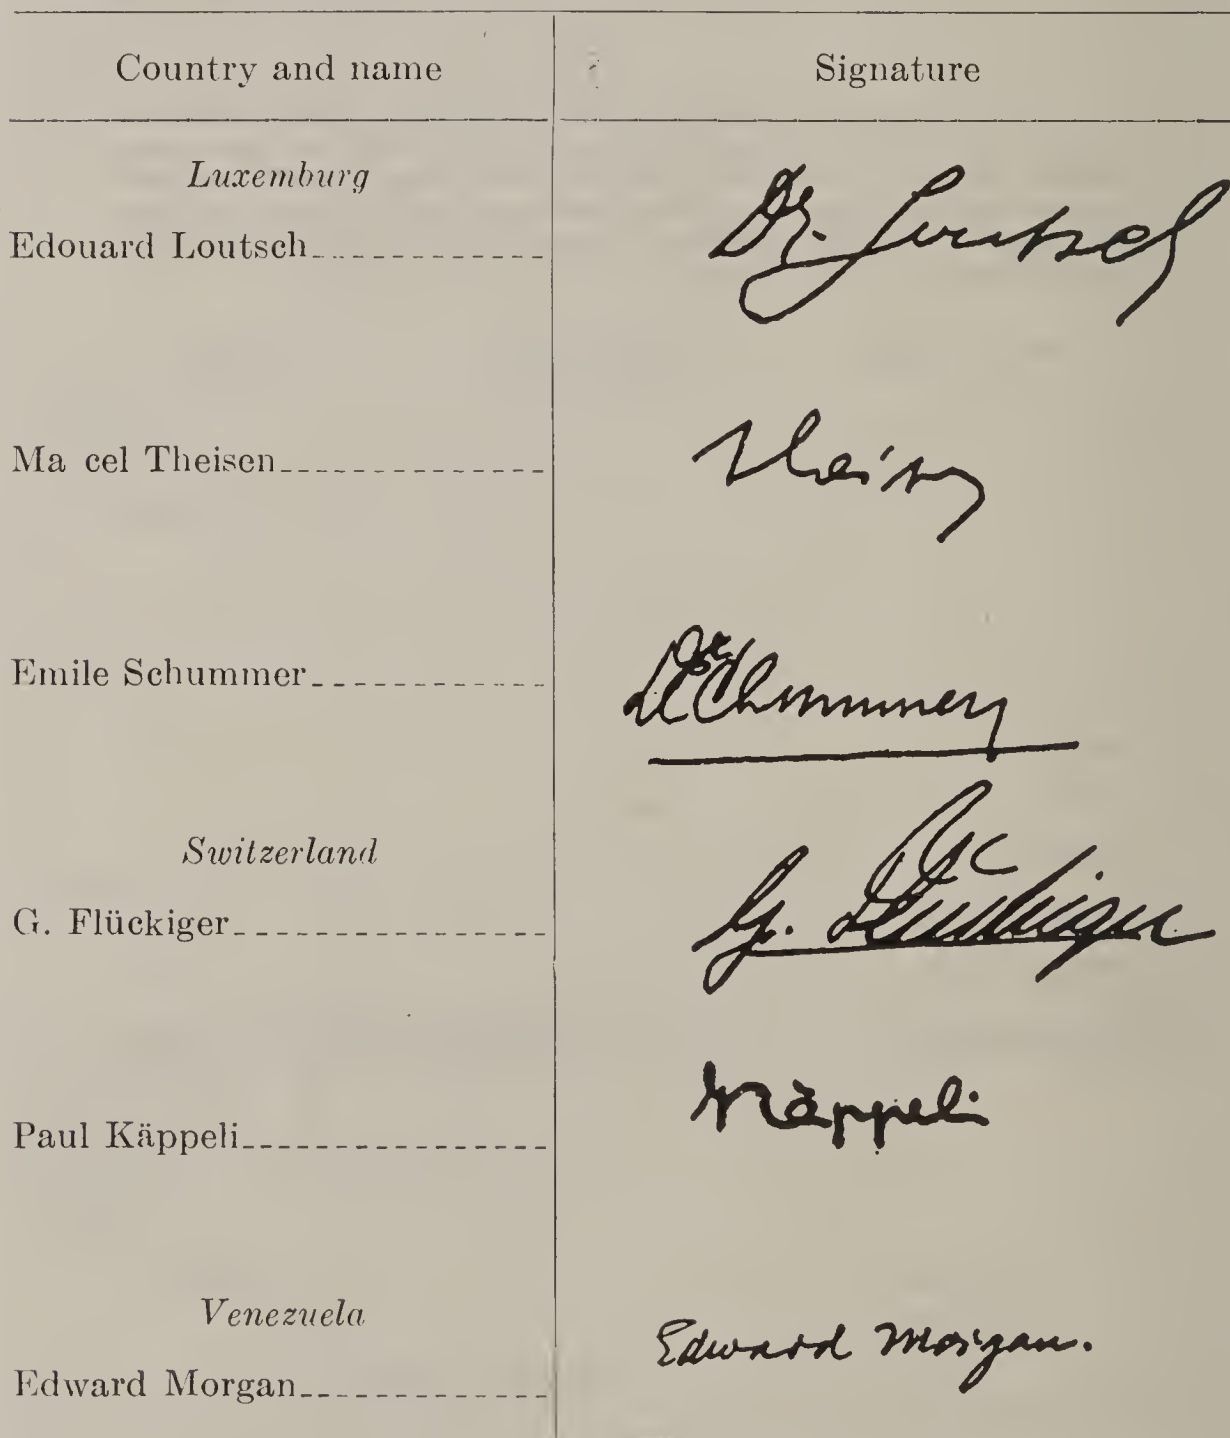 Country and name Signature
Luxemburg
Edouard Loutsch Dr. Loutsch
Ma cel Theisen Theisen
Emile Schummer Dr Schummer
Switzerland
G. Flückiger G. Flückiger
Paul Käppeli Käppeli
Venezuela
Edward Morgan Edward Morgan.